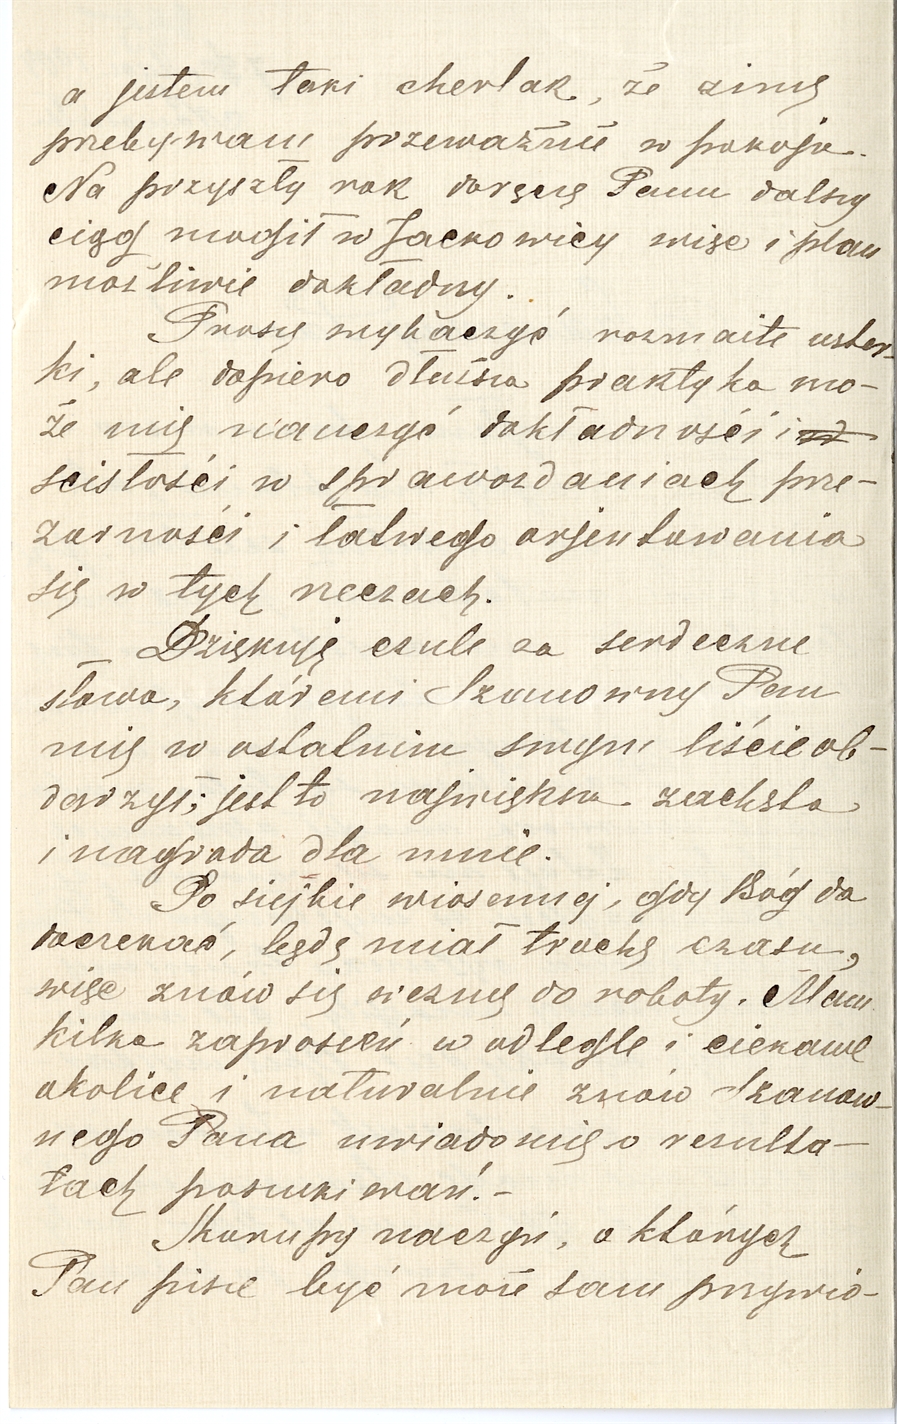 a jestem taki cherlak, że zimę
przebywam przeważnie w pokoju.
Na przyszły rok doręczę Panu dalszy
ciąg mogił w Jackowicy więc i plan
możliwie dokładny.
Proszę wybaczyć rozmaite uster-
ki, ale dopiero dłuższa praktyka mo-
że mię nauczyć dokładności i
ścisłości w sprawozdaniach prze-
zorności i łatwego orjentowania
się w tych rzeczach.
Dziękuję czule za serdeczne
słowa, któremi Szanowny Pan
mię w ostatnim swym liście ob-
darzył; jest to największa zachęta
i nagroda dla mnie.
Po siejbie wiosennej, gdy Bóg da
doczekać, będę miał trochę czasu,
więc znów się wezmę do roboty. Mam
kilka zaproszeń w odległe i ciekawe
okolice i naturalnie znów Szanow-
nego Pana uwiadomię o rezulta-
tach poszukiwań.-
Skorupy naczyń, o których
Pan pisze być może sam przywio-